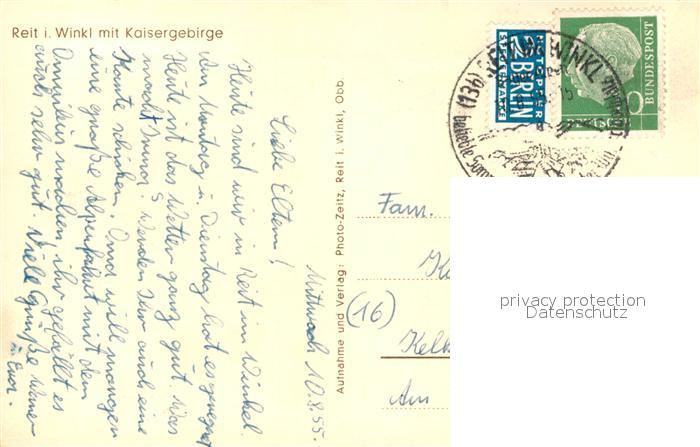 Reit i. Winkl mit Kaisergebirge
Mittwoch 10.8.55.
Liebe Eltern!
Heute sind wir in Reit im Winkel.
Am Montag u. Dienstag hat es geregnet
Heute ist das Wetter ganz gut. Was
macht Ihr? Werden Ihr auch eine
Karte schicken. Oma will morgen
eine große Alpenfahrt mit dem
Omnibus machen, ihr gefällt es
auch sehr gut. Viele Grüße
u. Eva.
Aufnahme und Verlag: Photo-Zeitz, Reit i. Winkl, Obb.
NOTOPFER
2 BERLIN
STEUERMARKE
DEUTSCHE
BUNDESPOST
10
(13b) REIT IM WINKL
Fam.
(16)
Kelk
Am
privacy protection
Datenschutz